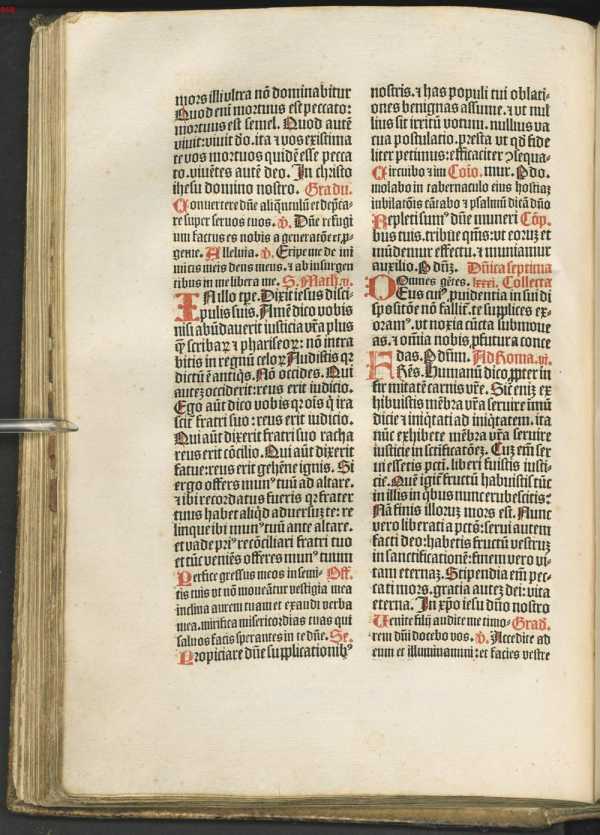 mors illi vltra nō dominabitur
Quod eni mortuus est peccato:
mortuus est semel. Quod autē
viuit: viuit d̄o. ita ⁊ vos existima
te vos mortuos quidē esse pecca
to. viuētes autē deo. In christo
ihesu domino nostro. Gradu.
Conuertere dn̄e aliqn̄tulū et dep̄ca-
re super seruos tuos. v̄. Dn̄e refugi
um factus es nobis a generatōe et ꝓ-
genie. Alleluia. v̄. Eripe me de ini
micis meis deus meus. ⁊ ab insurgen
tibus in me libera me. S. Math. v.
IN illo tp̄e. Dixit iesus disci-
pulis suis. Amē dico vobis
nisi abūdauerit iusticia vr̄a plus
ꝙ scribaꝝ ⁊ phariseoꝝ: nō intra
bitis in regnū celoꝝ Audistis qꝛ
dictū ē antiq̄s. Nō occides. Qui
auteꝫ occiderit: reus erit iudicio.
Ego aūt dico vobis qꝛ oīs q̄ ira
scit̄ fratri suo: reus erit iudicio.
Qui aūt dixerit fratri suo racha
reus erit cōcilio. Qui aūt dixerit
fatue: reus erit gehēne ignis. Si
ergo offers munꝰ tuū ad altare.
⁊ ibi recordatus fueris qꝛ frater
tuus habet aliqd̄ aduersuꝫ te: re
linque ibi munꝰ tuū ante altare.
et vade priꝰ recōciliari fratri tuo
et tūc veniēs offeres munꝰ tuum
Perfice gressus meos in semi- Off.
tis tuis vt nō moueāt̄ur vestigia mea
inclina aurem tuam et exaudi verba
mea. mirifica misericordias tuas qui
saluos facis sperantes in te dn̄e. Se.
Propiciare dn̄e supplicationibꝰ
nostris. ⁊ has populi tui oblati-
ones benignas assume. ⁊ vt nul
lius sit irritū votum. nullius va
cua postulatio. p̄sta vt qd̄ fide
liter petimus: efficaciter ↄsequa-
Circuibo ⁊ im Cōio. mur. P do.
molabo in tabernaculo eius hostiaꝫ
iubilatōis cātabo ⁊ psalmū dicā dn̄o
Repleti sumꝰ dn̄e muneri Cōp.
bus tuis. tribue q̄ms: vt eoruꝫ et
mūdemur effectu. ⁊ muniamur
auxilio. P dn̄ꝫ. Dn̄ica septima
Omnes gētes. lxxxi. Collecta
DEus cuiꝰ ꝓuidentia in sui di
spositōe nō fallit̄. te supplices ex-
oramꝰ. vt noxia cūcta submoue
as. ⁊ om̄ia nobis ꝓfutura conce
das. P dn̄m. Ad Roma. vi.
FRēs. Humanū dico ꝓpter in
firmitatē carnis vr̄e. Sic̄ eniꝫ ex
hibuistis mēbra vr̄a seruire īmū
dicie ⁊ iniq̄tati ad iniq̄tatem. ita
nūc exhibete mēbra vr̄a seruire
iusticie in sctificatōeꝫ. Cuꝫ em̄ ser
ui essetis pcti̅. liberi fuistis iusti-
cie. Quē igit̄ fructū habuistis tūc
in illis in q̄bus nunc erubescitis?
Nā finis illoruꝫ mors est. Nunc
vero liberati a pctō: serui autem
facti deo: habetis fructū vestruꝫ
in sanctificationē: finem vero vi-
tam eternaꝫ. Stipendia em̄ pec-
cati mors. gratia auteꝫ dei: vita
eterna. In xp̄o iesu dn̄o nostro
Uenite filij audite me timo- Grad.
rem dn̄i docebo vos. v̄. Accedite ad
eum et illuminamini: et facies vestre